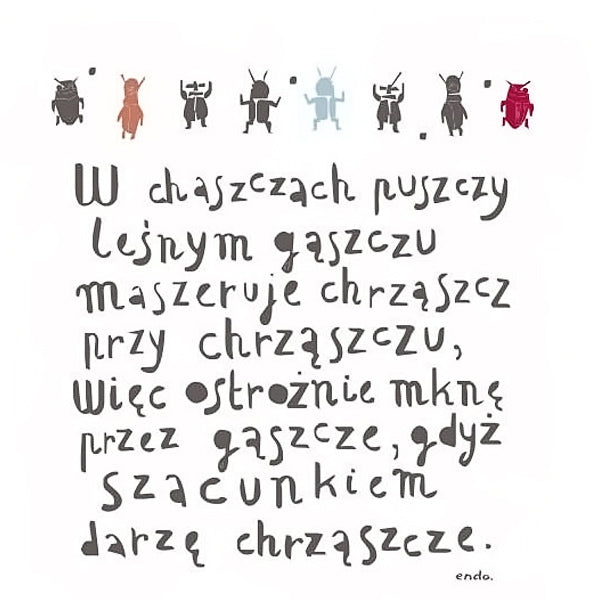 W chaszczach puszczy
leśnym gąszczu
maszeruje chrząszcz
przy chrząszczu,
więc ostrożnie mknę
przez gąszcze, gdyż
szacunkiem
darzę chrząszcze.
endo.